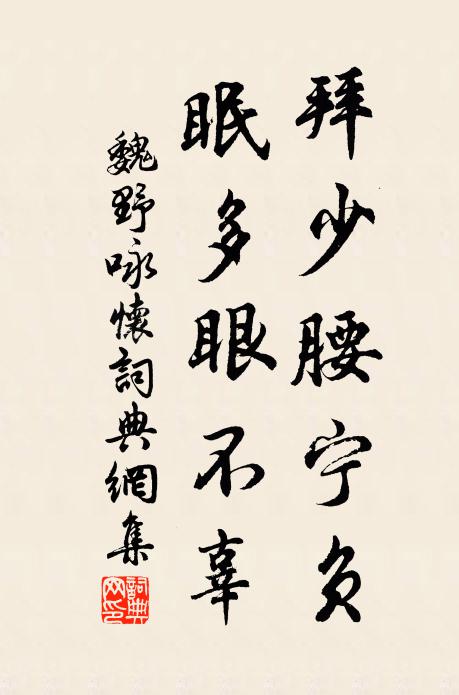 拜少腰宁负
眠多眼不辜
魏野咏懷詞典網集
詞典
网印